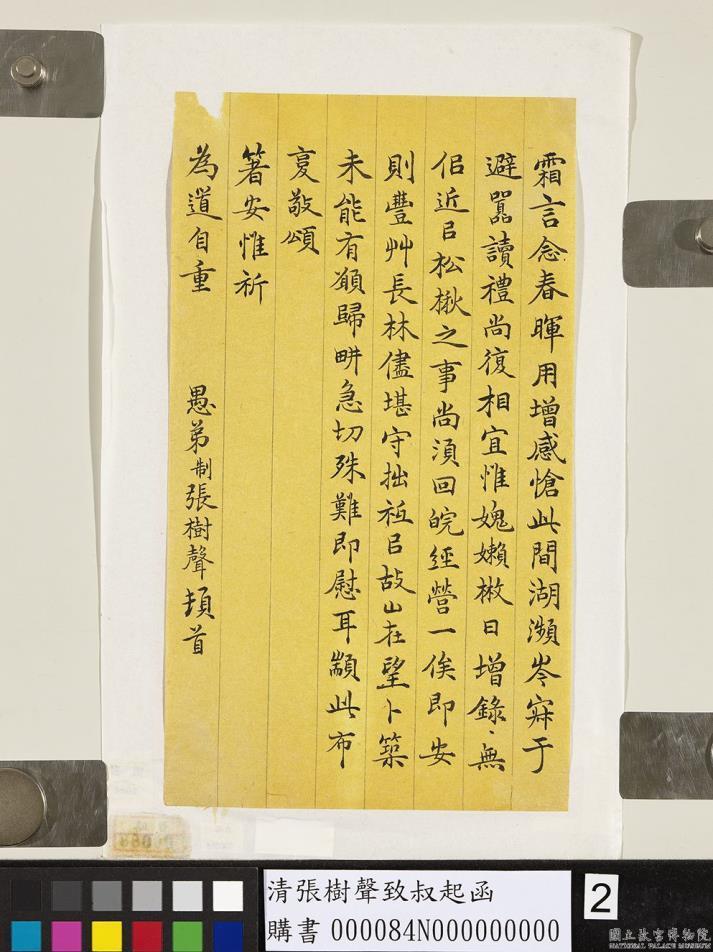 霜言念春暉用增感愴此間湖濱岑寂于
避囂讀禮尚復相宜惟媿嬾散日增錄〻無
侶近㠯松楸之事尚須回皖經營一俟即安
則豐艸長林儘堪守拙祗㠯故山在望卜築
未能有願歸畊急切殊難即慰耳顓此布
敬頌
箸安惟祈
為道自重
愚弟制張樹聲頓首
清張樹聲致叔起函
購書 000084N000000000
2
國立故宮博物院
NATIONAL PALACE MUSEUM